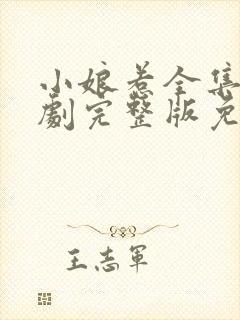 小娘惹全集
劇完整版免
王志軍